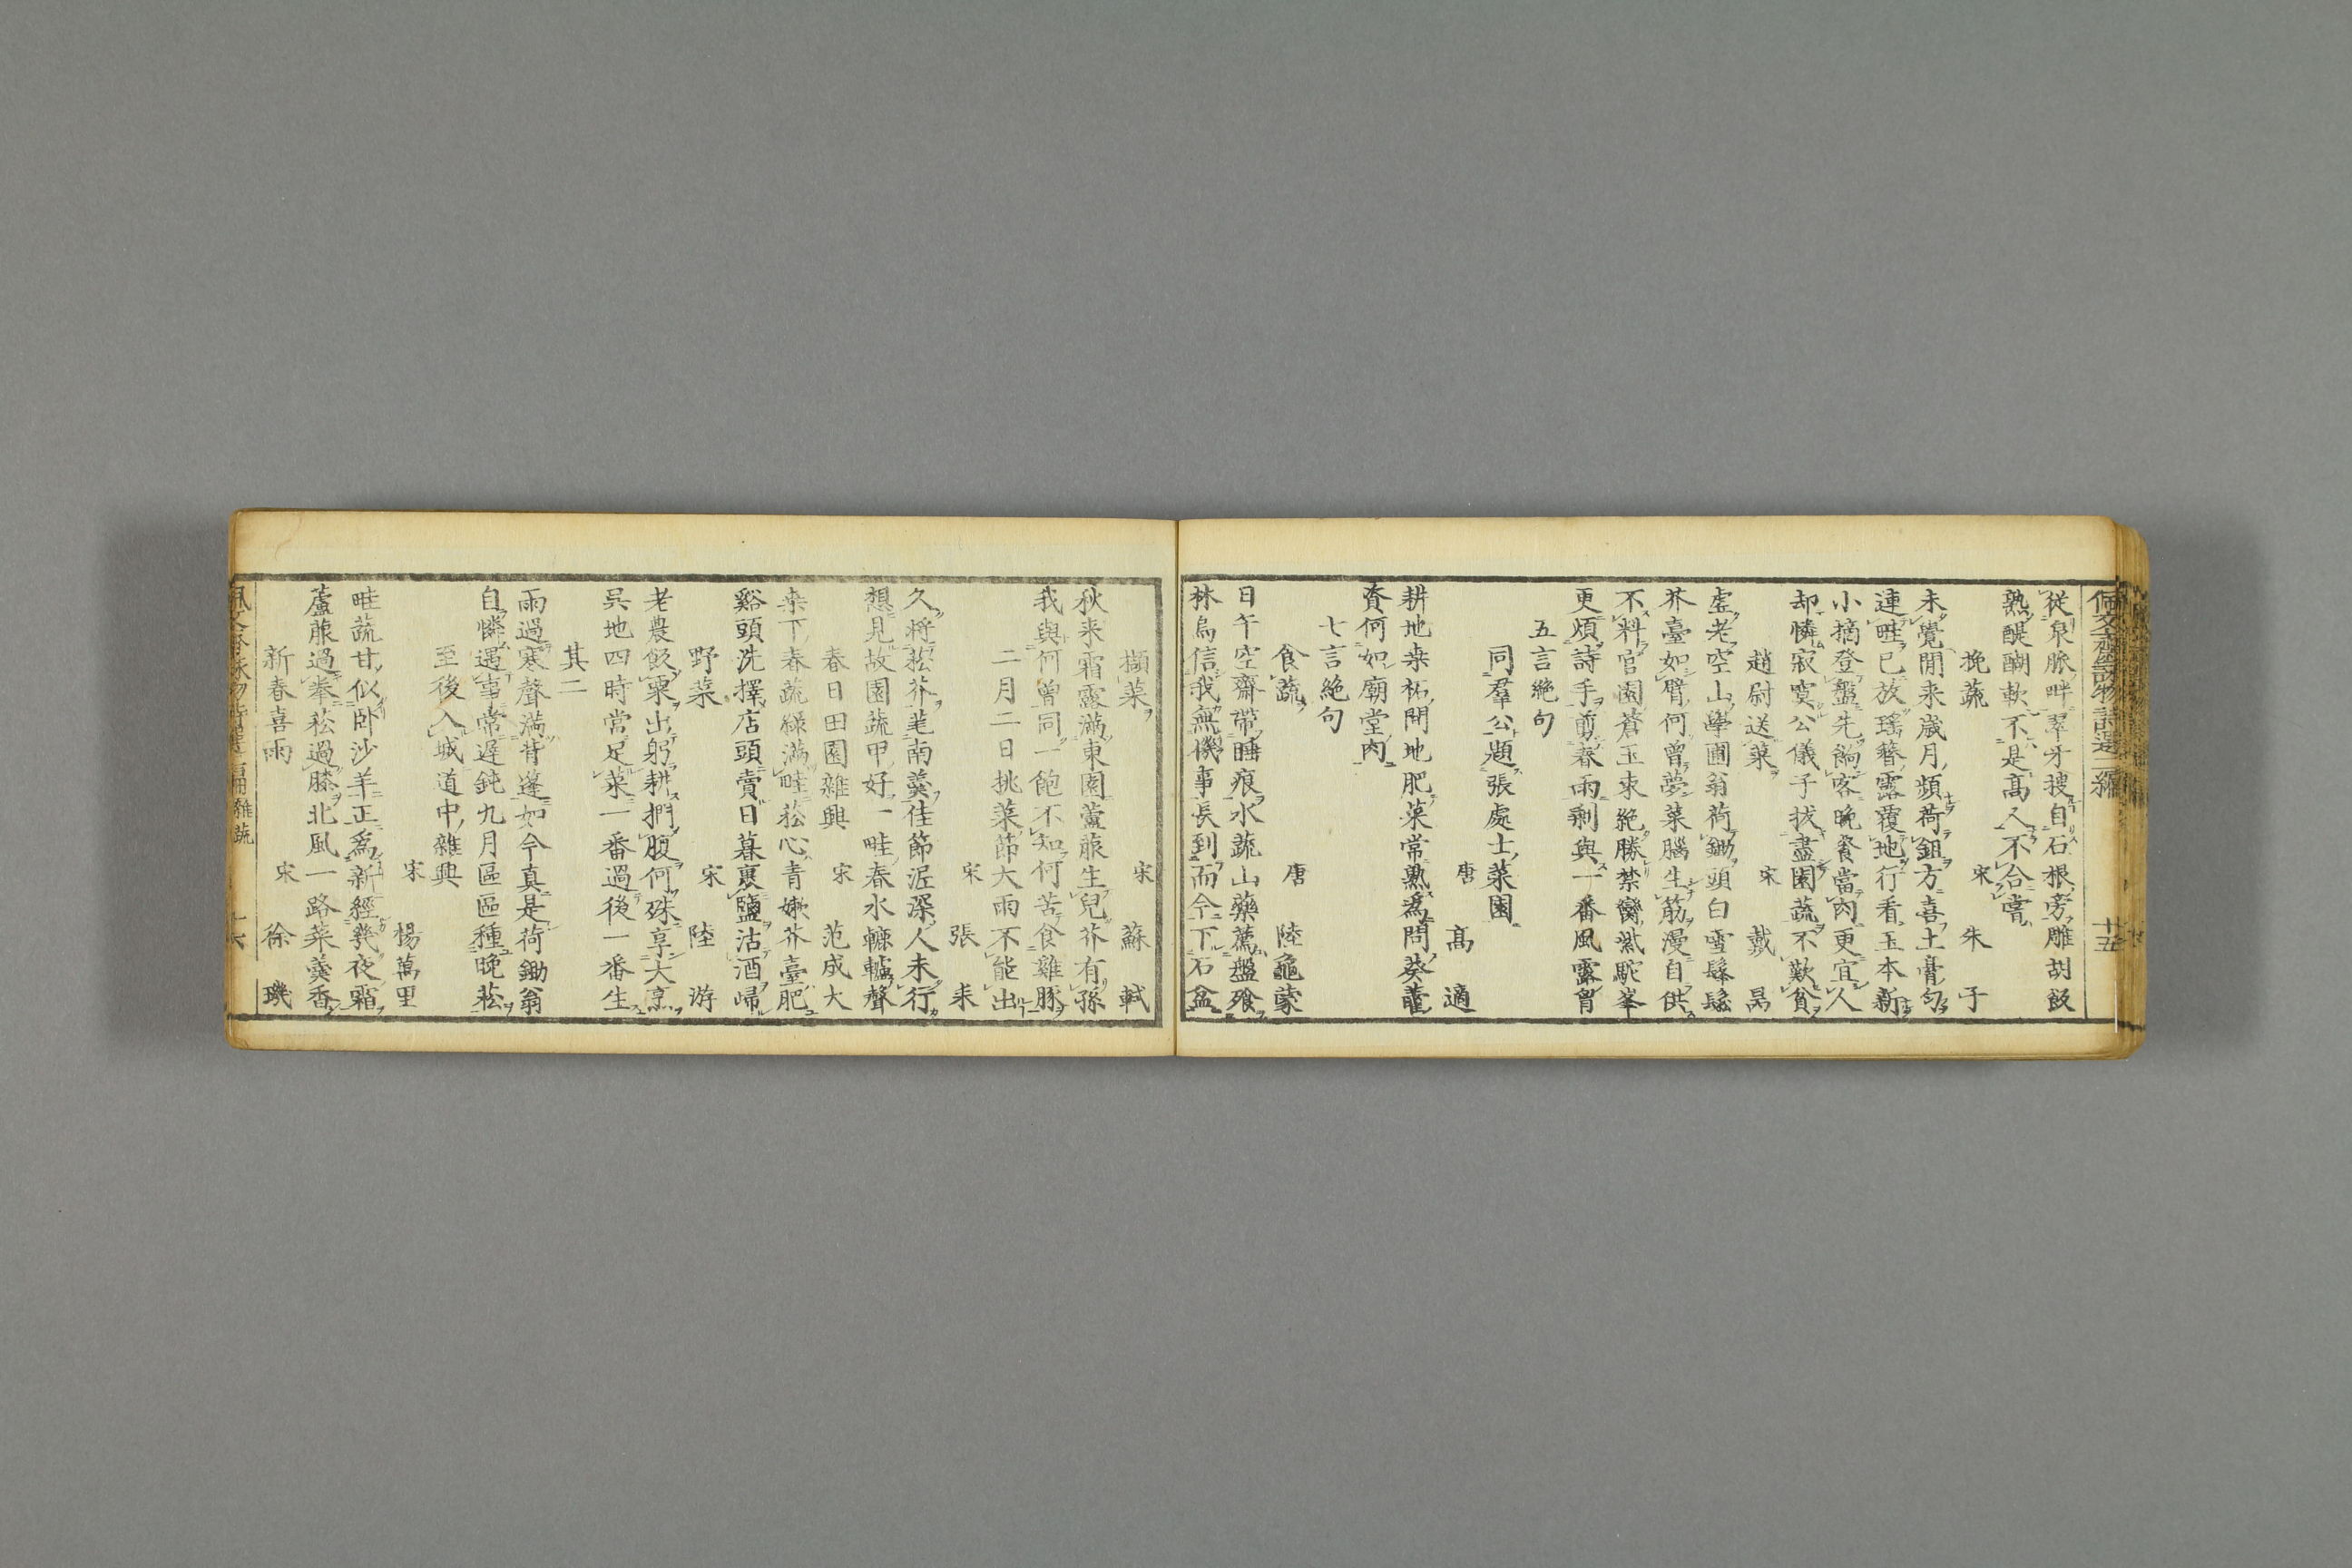 佩文齋詠物詩選二編 十五
從泉脈畔翠牙搜自石根旁雕胡飯
熟醍醐軟不是髙人不合嘗
挽蔬 宋 朱子
未覺閒来歳月頻荷鉏方喜土膏勻
連畦已放瑤簪露覆地行看玉本新
小摘登盤先餉客晚飡當肉更宜人
却憐寂寞公儀子拔盡園蔬不歎貧
趙尉送菜 宋 戴昺
虛老空山學圃翁荷鋤頭白雪鬅鬆
芥臺如臂何曾夢菜腦生筋漫自供
不料官園蒼玉束絶勝禁臠紫駝峯
更煩詩手剪春雨剩與一番風露胷
五言絶句
同羣公題張處士菜園
唐 髙適
耕地桒柘閒地肥菜常熟為問葵藿
資何如廟堂肉
七言絶句
食蔬 唐 陸龜蒙
日午空齋帶睡痕水蔬山藥薦盤飱
林烏信我無機事長到而今下石盆
擷菜 宋 蘇軾
秋来霜露滿東園蘆菔生兒芥有孫
我與何曾同一飽不知何苦食雞豚
二月二日挑菜節大雨不能出
宋 張耒
久將菘芥芼南羹佳節泥深人未行
想見故園蔬甲好一畦春水轆轤聲
春日田園雜興 宋 范成大
桒下春蔬緑滿畦菘心青嫩芥臺肥
谿頭洗擇店頭賣日暮裹鹽沽酒歸
野菜 宋 陸游
老農飯粟出躬耕捫腹何殊享大烹
吳地四時常足菜一番過後一番生
其二
雨過寒聲滿背蓬如今真是荷鋤翁
自憐遇事常遲鈍九月區區種晚菘
至後入城道中雜興
宋 楊萬里
畦蔬甘似卧沙羊正為新經幾夜霜
蘆菔過拳菘過膝北風一路菜羹香
新春喜雨 宋 徐璣